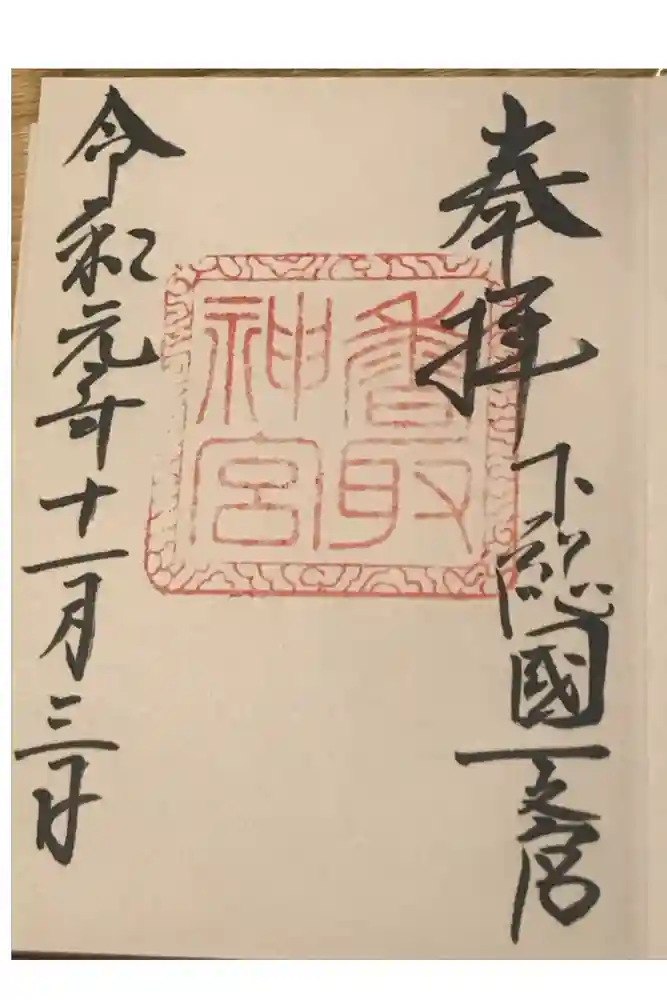 奉拝
下総國一之宮
香取
神宮
令和元年十一月三日